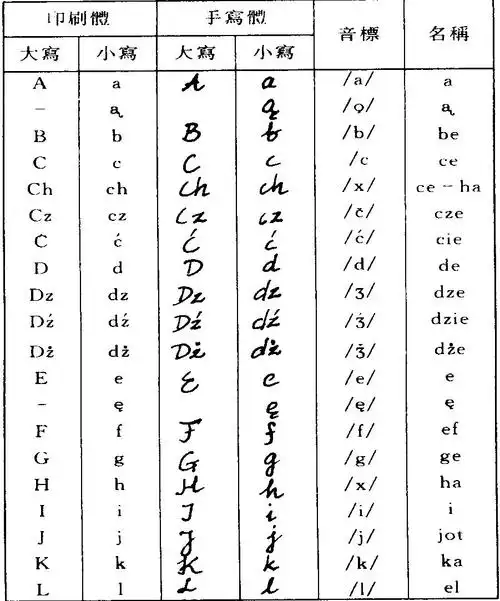 印刷體 手寫體 音標 名稱
大寫 小寫 大寫 小寫
A a A a /a/ a
– ą ą /ǫ/ ą
B b B b /b/ be
C c C c /c ce
Ch ch Ch ch /x/ ce – ha
Cz cz Cz cz /č/ cze
C ć Ć ć /ć/ cie
D d D d /d/ de
Dz dz Dz dz /ʒ/ dze
Dź dź Dź dź /ʒ́/ dzie
Dż dż Dż dż /ǯ/ dże
E e E e /e/ e
– ę ę /ę/ ę
F f F f /f/ ef
G g G g /g/ ge
H h H h /x/ ha
I i I i /i/ i
J j J j /j/ jot
K k K k /k/ ka
L l L l /l/ el